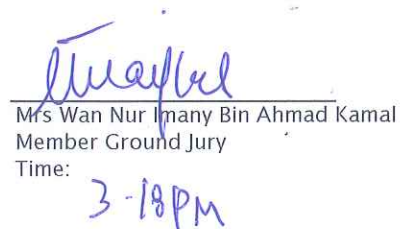 Mrs Wan Nur Imany Bin Ahmad Kamal
Member Ground Jury
Time:
3-18PM